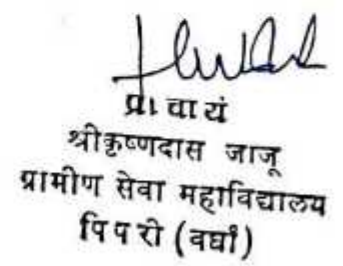 प्राचार्य
श्रीकृष्णदास जाजू
ग्रामीण सेवा महाविद्यालय
पिपरी (वर्धा)